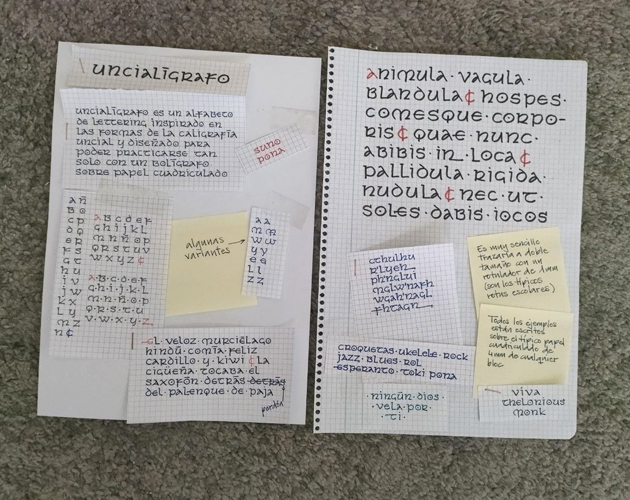 uncialígrafo
uncialígrafo es un alfabeto
de lettering inspirado en
las formas de la caligrafía
uncial y diseñado para
poder practicarse tan
solo con un bolígrafo
sobre papel cuadriculado
suno
pona
añ
bo
cp
dq
er
fs
gt
hu
iv
jw
kx
ly
mz
n¢
abcdef
ghijkl
mnñop
qrstuv
wxyz¢
a·b·c·d·e·f
g·h·i·j·k·l
m·n·ñ·o·p
q·r·s·t·u
v·w·x·y·z
algunas
variantes
aa
mm
ww
yy
ee
ll
zz
el veloz murciélago
hindú comía feliz
cardillo y kiwi ¢ la
cigüeña tocaba el
saxofón detrás detrás
del palenque de paja
perdón
animula·vagula·
blandula¢ hospes·
comesque·corpo-
ris¢ quae·nunc·
abibis·in·loca¢
pallidula·rigida·
nudula¢ nec·ut·
soles·dabis·iocos
cthulhu
r'lyeh
ph'nglui
mglw'nafh
wgah'nagl
fhtagn
Es muy sencillo
trazarla a doble
tamaño con un
rotulador de 1mm
(son los típicos
rotus escolares)
Todos los ejemplos
están escritos
sobre el típico papel
cuadriculado de
4mm de cualquier
bloc
croquetas·ukelele·rock
jazz·blues·rol
esperanto·toki pona
·ningún·dios·
·vela·por·
·ti·
viva
thelonious
monk